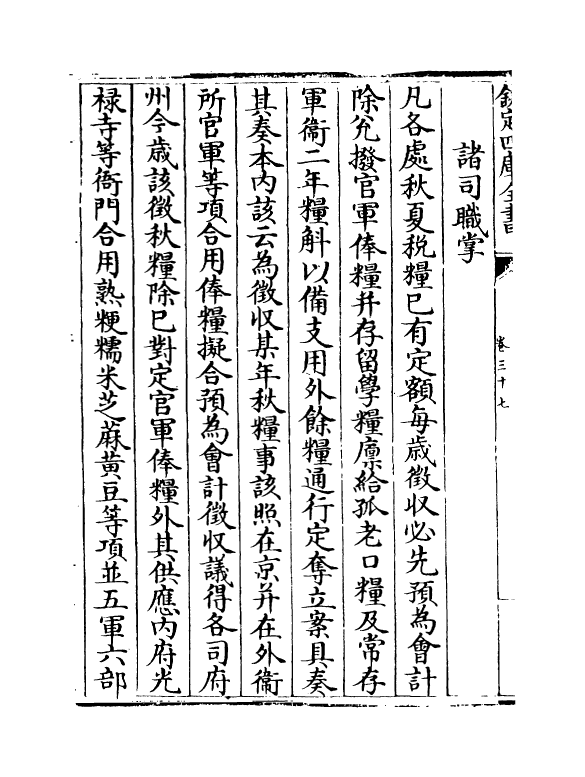 欽定四庫全書
卷三十七
諸司職掌
凡各處秋夏税糧已有定額每歲徵收必先預為會計
除兊撥官軍俸糧并存留學糧廪給孤老口糧及常存
軍衛二年糧斛以備支用外餘糧通行定奪立案具奏
其奏本内該云為徵收某年秋糧事該照在京并在外衛
所官軍等項合用俸糧擬合預為會計徵收議得各司府
州今歲該徵秋糧除已對定官軍俸糧外其供應内府光
禄寺等衙門合用熟粳糯米芝蔴黄豆等項並五軍六部